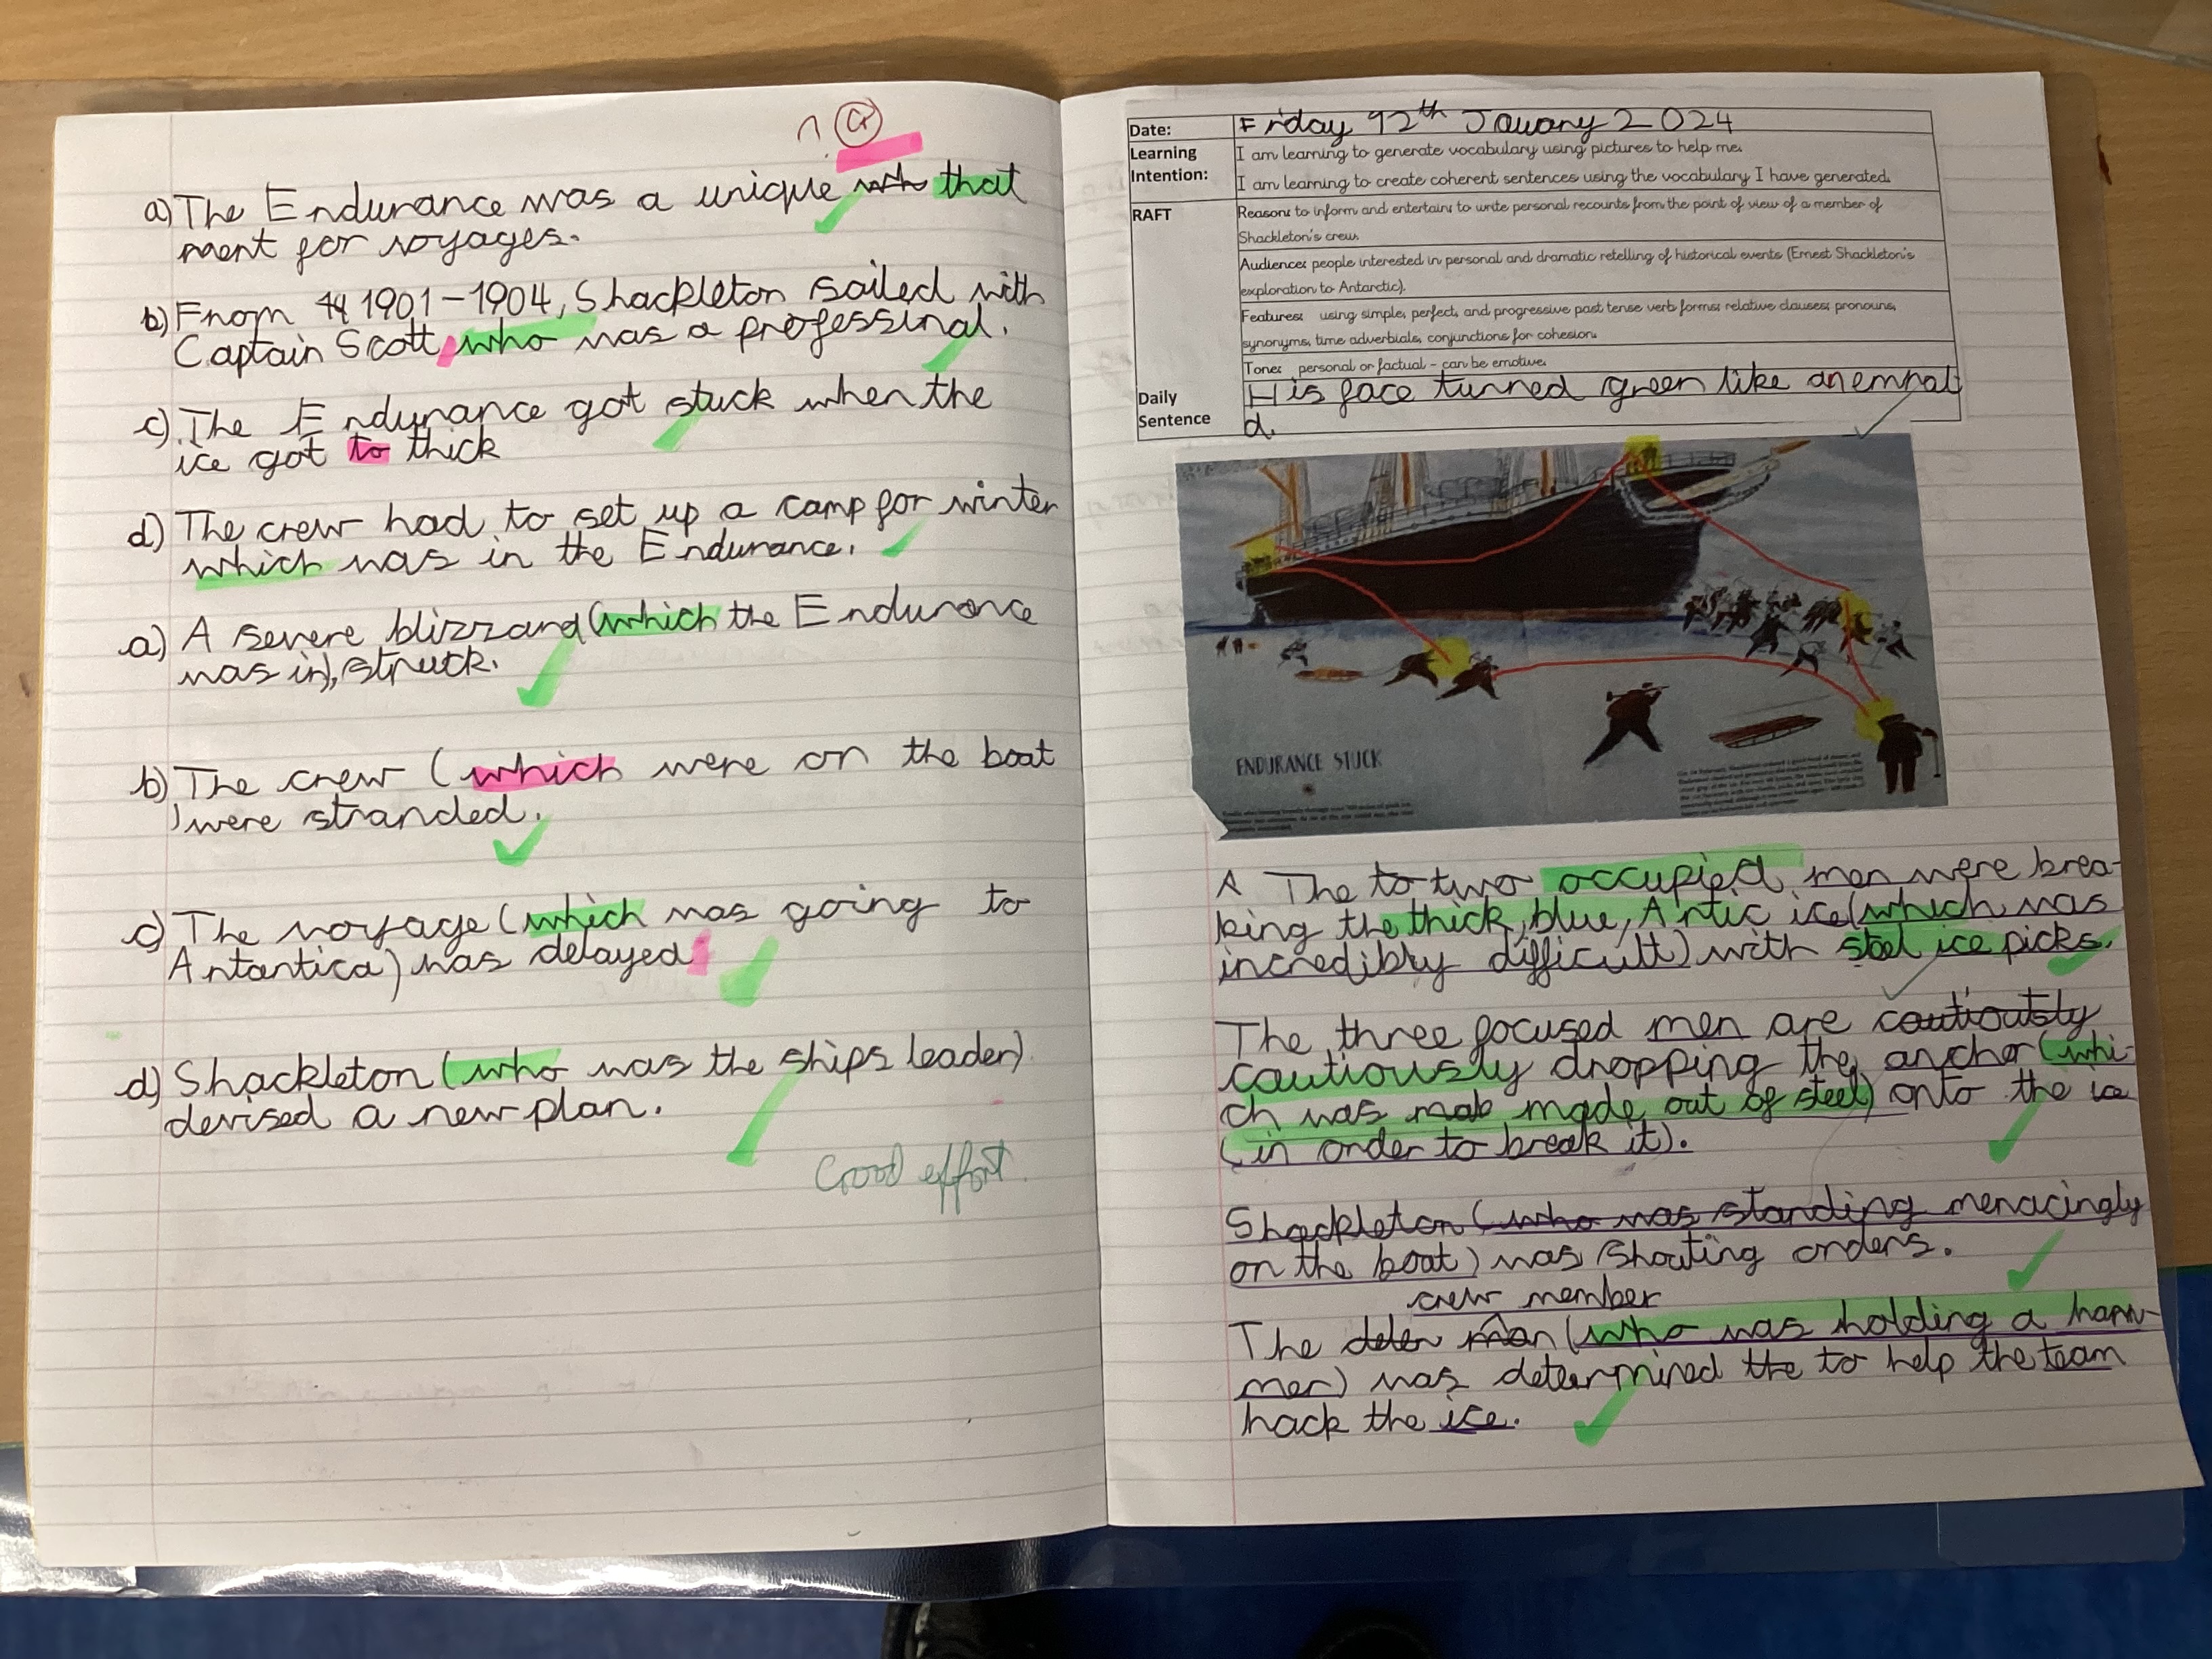 a) The Endurance was a unique that
ment for voyages.
b) From 1901-1904, Shackleton sailed with
Captain Scott, who was a professinal.
c) The Endurance got stuck when the
ice got to thick
d) The crew had to set up a camp for winter
which was in the Endurance.
a) A severe blizzard (which the Endurance
was in), struck.
b) The crew (which were on the boat
) were stranded.
c) The voyage (which was going to
Antantica) was delayed
d) Shackleton (who was the ships leader)
devised a new plan.
Good effort.
Date: Friday 12th January 2024
Learning Intention: I am learning to generate vocabulary using pictures to help me.
I am learning to create coherent sentences using the vocabulary I have generated.
RAFT Reason: to inform and entertain: to write personal recounts from the point of view of a member of
Shackleton's crew.
Audience: people interested in personal and dramatic retelling of historical events (Ernest Shackleton's
exploration to Antarctic).
Features: using simple, perfect, and progressive past tense verb forms; relative clauses; pronouns,
synonyms, time adverbials, conjunctions for cohesion.
Tone: personal or factual - can be emotive.
Daily Sentence His face turned green like an emral
d.
ENDURANCE STUCK
A The to two occupied men were brea-
king the thick, blue, Artic ice (which was
incredibly difficult) with steel ice picks.
The three focused men are cautiously
cautiously dropping the anchor (whi-
ch was mab made out of steel) onto the ice
(in order to break it).
Shackleton (who was standing menacingly
on the boat) was shouting orders.
crew member
The deter man (who was holding a ham-
mer) was determined the to help the team
hack the ice.